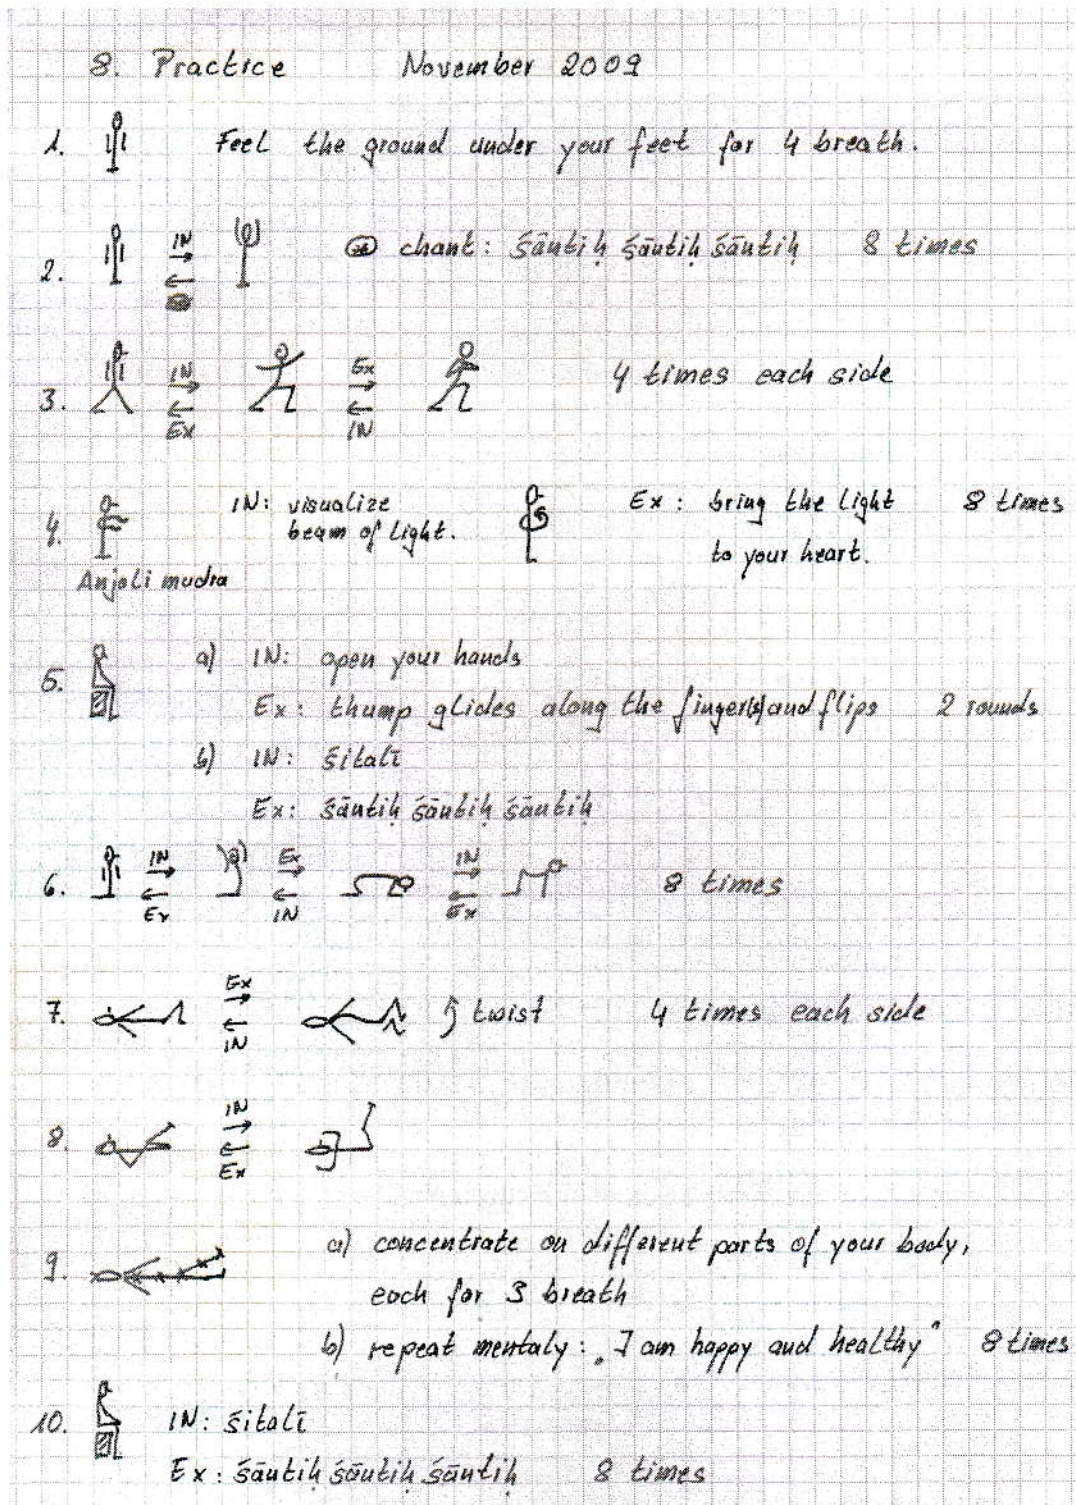 8. Practice November 2009
1. Feel the ground under your feet for 4 breath.
2. IN chant: śāntiḥ śāntiḥ śāntiḥ 8 times
3. IN Ex 4 times each side
Ex IN
4. IN: visualize Ex: bring the light 8 times
beam of light. to your heart.
Anjali mudra
5. a) IN: open your hands
Ex: thump glides along the finger(s) and flips 2 rounds
b) IN: śitalī
Ex: śāntiḥ śāntiḥ śāntiḥ
6. IN Ex IN 8 times
Ex IN Ex
7. Ex twist 4 times each side
IN
8. IN
Ex
9. a) concentrate on different parts of your body,
each for 3 breath
b) repeat mentaly: „I am happy and healthy" 8 times
10. IN: śitalī
Ex: śāntiḥ śāntiḥ śāntiḥ 8 times